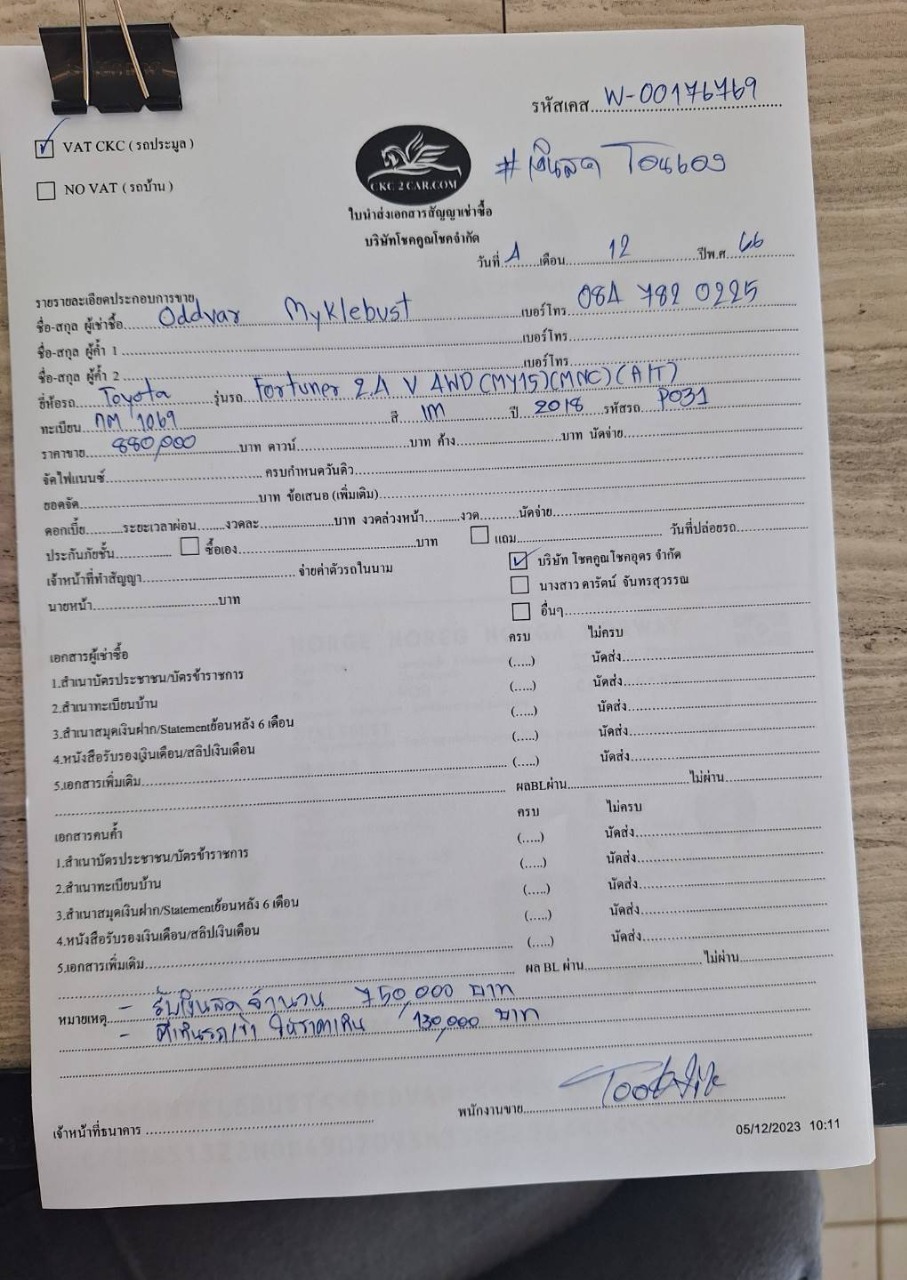 รหัสเคส....W-00176769
VAT CKC ( รถประมูล )
#เงินสด โอนเอง
NO VAT ( รถบ้าน )
CKC 2 CAR.COM
ใบนำส่งเอกสารสัญญาเช่าซื้อ
บริษัทโชคคูณโชคจำกัด
วันที่ 4 เดือน 12 ปีพ.ศ. 66
รายรายละเอียดประกอบการขาย
ชื่อ-สกุล ผู้เช่าซื้อ Oddvar Myklebust เบอร์โทร 084 782 0225
ชื่อ-สกุล ผู้ค้ำ 1 เบอร์โทร
ชื่อ-สกุล ผู้ค้ำ 2 เบอร์โทร
ยี่ห้อรถ Toyota รุ่นรถ Fortuner 2.4 V 4WD (MY15)(MNC)(A/T)
ทะเบียน กM 1069 สี ปี 2018 รหัสรถ P031
ราคาขาย 880,000 บาท ดาวน์ บาท ค้าง บาท นัดจ่าย
จัดไฟแนนซ์ ครบกำหนดวันคิว
ยอดจัด บาท ข้อเสนอ (เพิ่มเติม)
ดอกเบี้ย ระยะเวลาผ่อน งวดละ บาท งวดล่วงหน้า งวด นัดจ่าย
ประกันภัยชั้น ซื้อเอง บาท แถม วันที่ปล่อยรถ
เจ้าหน้าที่ทำสัญญา จ่ายค่าตัวรถในนาม บริษัท โชคคูณโชคอุดร จำกัด
นายหน้า บาท นางสาว ดารัตน์ จันทรสุวรรณ
อื่นๆ
เอกสารผู้เช่าซื้อ ครบ ไม่ครบ
1.สำเนาบัตรประชาชน/บัตรข้าราชการ (.....) นัดส่ง
2.สำเนาทะเบียนบ้าน (.....) นัดส่ง
3.สำเนาสมุดเงินฝาก/Statementย้อนหลัง 6 เดือน (.....) นัดส่ง
4.หนังสือรับรองเงินเดือน/สลิปเงินเดือน (.....) นัดส่ง
5.เอกสารเพิ่มเติม (.....) นัดส่ง
ผลBLผ่าน ไม่ผ่าน
เอกสารคนค้ำ ครบ ไม่ครบ
1.สำเนาบัตรประชาชน/บัตรข้าราชการ (.....) นัดส่ง
2.สำเนาทะเบียนบ้าน (.....) นัดส่ง
3.สำเนาสมุดเงินฝาก/Statementย้อนหลัง 6 เดือน (.....) นัดส่ง
4.หนังสือรับรองเงินเดือน/สลิปเงินเดือน (.....) นัดส่ง
5.เอกสารเพิ่มเติม (.....) นัดส่ง
ผล BL ผ่าน ไม่ผ่าน
หมายเหตุ - รับเงินสด จำนวน 750,000 บาท
- ตีเทิร์นรถเข้า ให้ราคาเทิน 130,000 บาท
พนักงานขาย
เจ้าหน้าที่ธนาคาร
05/12/2023 10:11